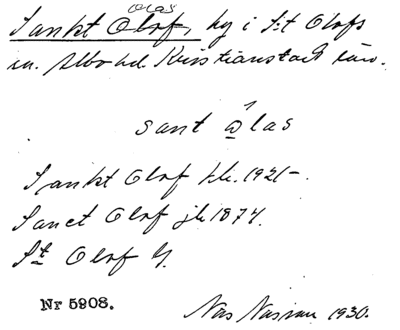 olas
Sankt Olof, by i S:t Olofs
sn. Albo hd. Kristianstads län.
sant ola̲s
Sankt Olof tk. 1921-
Sanct Olof jb 1874.
St Olof
Nr 5908.
1930.